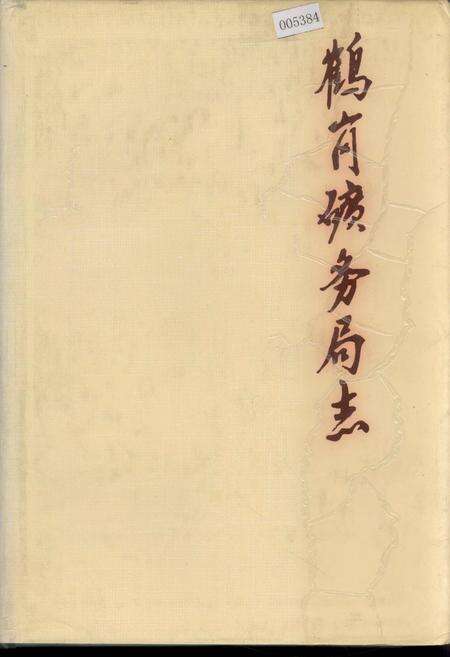 005384
鹤岗礦务局志